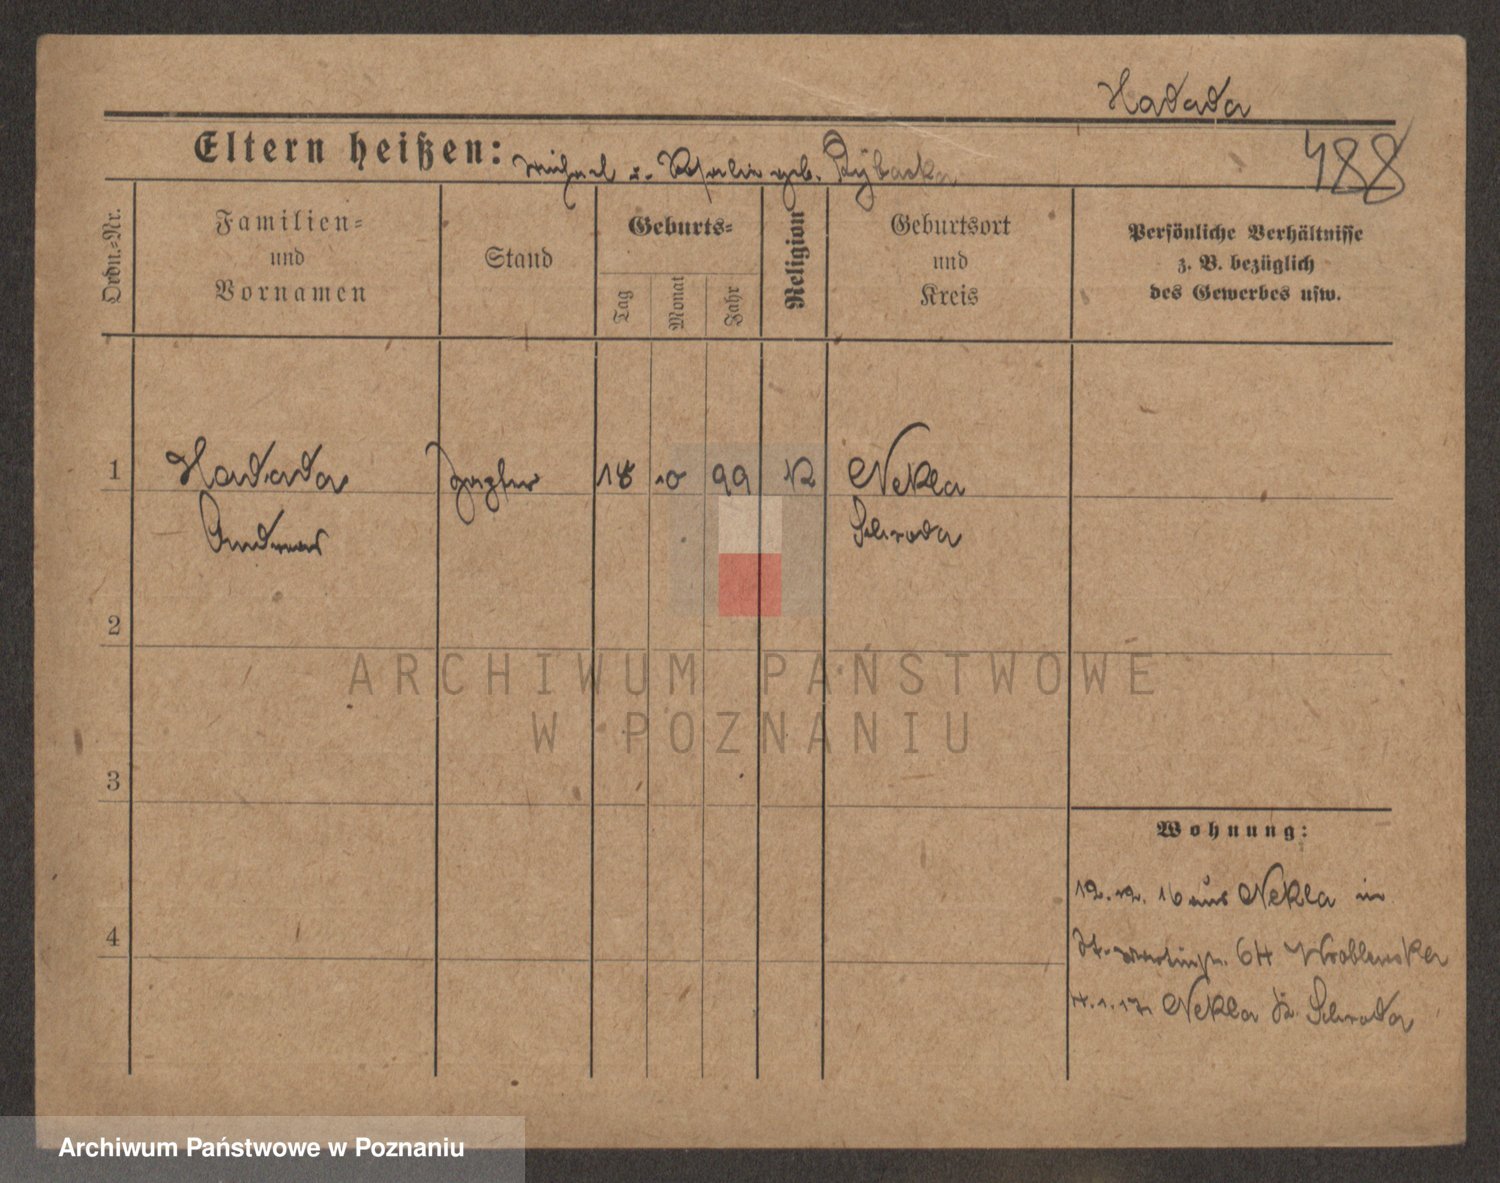 Hadada
Eltern heißen: Michael u. Rosalie geb. Rybacka
488
Ordn.=Nr.
Familien=
und
Vornamen
Stand
Geburts=
Tag
Monat
Jahr
Religion
Geburtsort
und
Kreis
Persönliche Verhältnisse
z. B. bezüglich
des Gewerbes usw.
1 Hadada 18 10 99 K Nekla
Andreas Schroda
2
ARCHIWUM PAŃSTWOWE
W POZNANIU
3
Wohnung:
12.12.16 aus Nekla in
St. Martinstr. 64 Wroblewska
4
4.1.17 Nekla Kr. Schroda
Archiwum Państwowe w Poznaniu